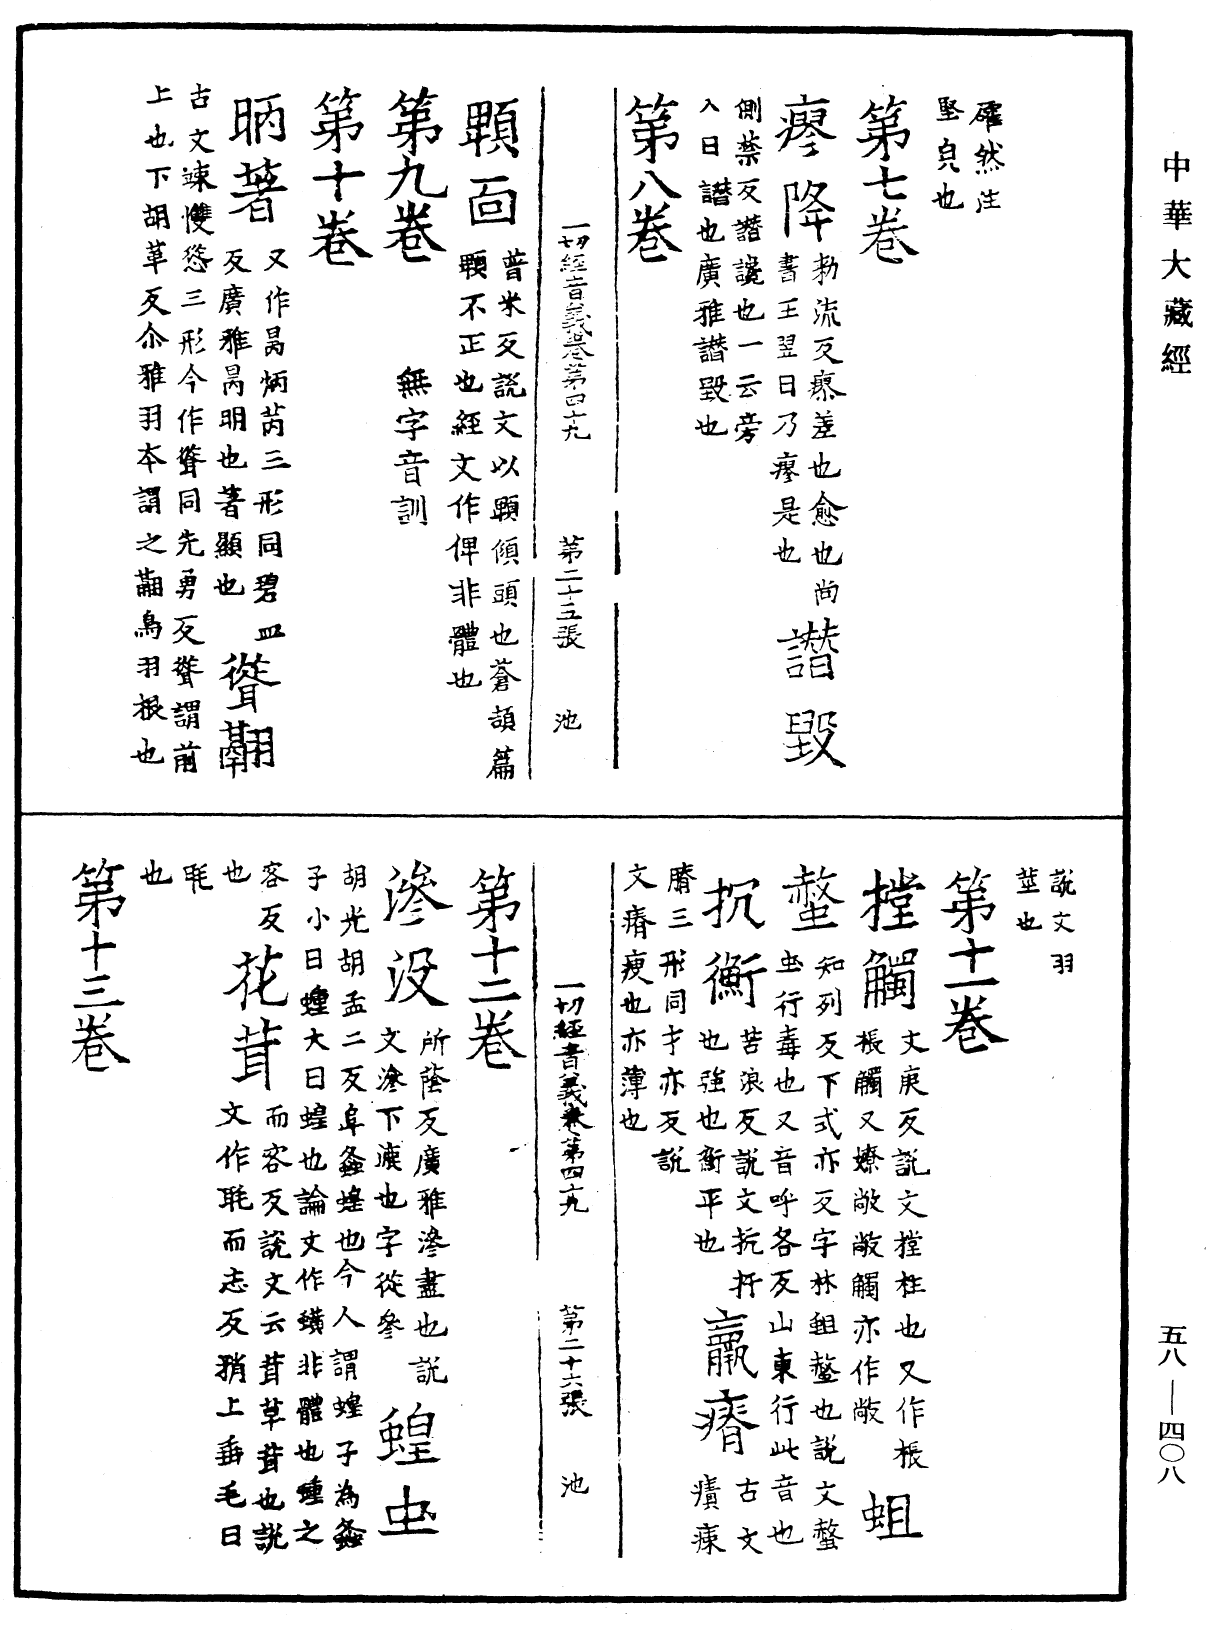 中華大藏經
確然注
堅皃也
第七卷
瘳降
勑流反瘳差也愈也尚
書王翌日乃瘳是也
譖毀
側禁反譖讒也一云旁
入曰譖也廣雅譖毀也
第八卷
一切經音義卷第四十九　第二十五張　池
顆面
普米反說文以顆傾頭也蒼頡篇
顆不正也經文作俾非體也
第九卷
無字音訓
第十卷
昞著
又作昺炳苪三形同碧皿
反廣雅昺明也著顯也
聳翮
古文竦㩳慫三形今作聳同先勇反聳謂前
上也下胡革反尒雅羽本謂之翮鳥羽根也
說文羽
莖也
第十一卷
摚觸
丈庚反說文摚柱也又作棖
棖觸又嫽敞敞觸亦作敞
蛆
螫
知列反下式亦反字林蛆螫也說文螫
虫行毒也又音呼各反山東行此音也
抗衡
苦浪反說文抗扞
也強也衡平也
羸瘠
古文
㾊㾊
膌三形同才亦反說
文瘠瘦也亦薄也
一切經音義卷第四十九　第二十六張　池
第十二卷
滲没
所蔭反廣雅滲盡也說
文滲下漉也字從參
蝗虫
胡光胡孟二反阜螽蝗也今人謂蝗子為螽
子小曰蝩大曰蝗也論文作蟥非體也蝩之
容反
花茸
而容反說文云茸草茸也說
文作毦而志反稍上垂毛曰
毦
也
第十三卷
五八—四〇八